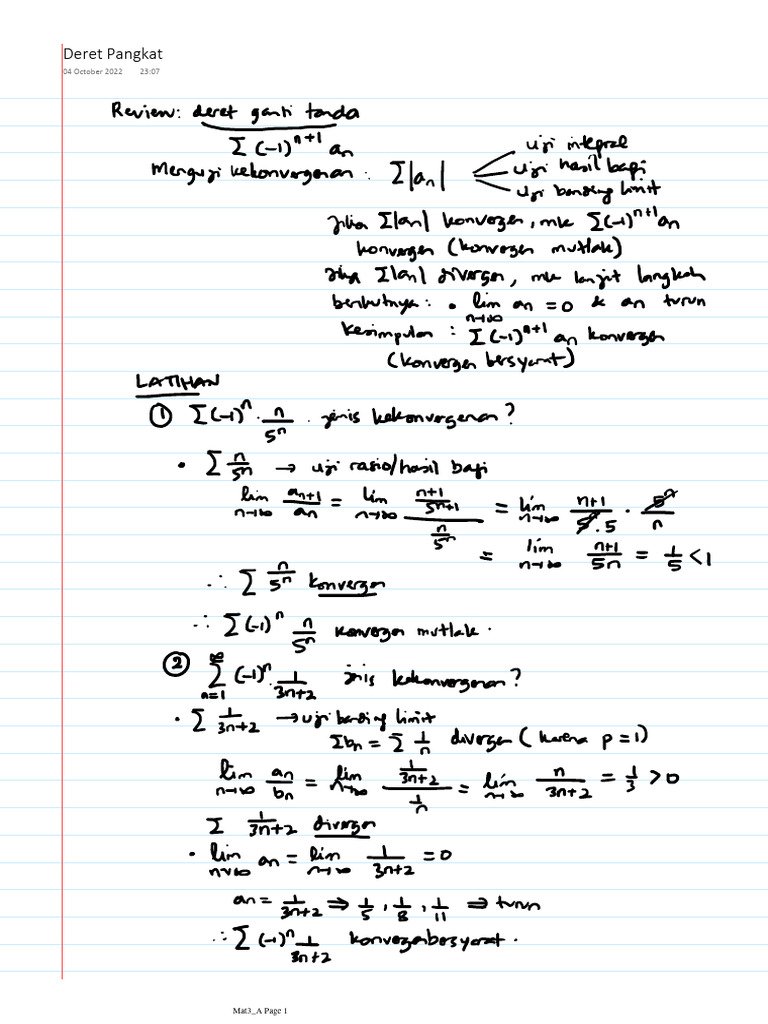 Deret Pangkat
04 October 2022 23:07
Review: deret ganti tanda
Σ (-1)^{n+1} an
Menguji kekonvergenan : Σ|an|
uji integral
uji hasil bagi
uji banding limit
Jika Σ|an| konvergen, mk Σ(-1)^{n+1} an
konvergen (konvergen mutlak)
Jika Σ|an| divergen, mk lanjut langkah
berikutnya : • lim_{n→∞} an = 0 & an turun
Kesimpulan : Σ(-1)^{n+1} an konvergen
(konvergen bersyarat)
LATIHAN
① Σ(-1)^n · n/5^n . jenis kekonvergenan?
• Σ n/5^n → uji rasio/hasil bagi
lim_{n→∞} an+1/an = lim_{n→∞} ((n+1)/5^{n+1})/(n/5^n) = lim_{n→∞} (n+1)/(5^n.5) · 5^n/n
= lim_{n→∞} (n+1)/5n = 1/5 < 1
∴ Σ n/5^n konvergen
∴ Σ(-1)^n n/5^n konvergen mutlak.
② Σ_{n=1}^{∞} (-1)^n · 1/(3n+2) jenis kekonvergenan?
• Σ 1/(3n+2) → uji banding limit
Σbn = Σ 1/n divergen (karena p=1)
lim_{n→∞} an/bn = lim_{n→∞} (1/(3n+2))/(1/n) = lim_{n→∞} n/(3n+2) = 1/3 > 0
Σ 1/(3n+2) divergen
• lim_{n→∞} an = lim_{n→∞} 1/(3n+2) = 0
an = 1/(3n+2) ⇒ 1/5, 1/8, 1/11 ⇒ turun
∴ Σ(-1)^n 1/(3n+2) konvergen bersyarat.
Mat3_A Page 1